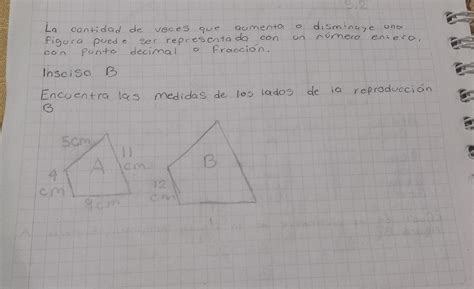 5.2
La cantidad de veces que aumenta o disminuye una
figura puede ser representada con un número entero,
con punto decimal o fracción.
Insciso B
Encuentra las medidas de los lados de la reproducción
B
5cm
11
cm
A
4
cm
9cm
B
12
cm